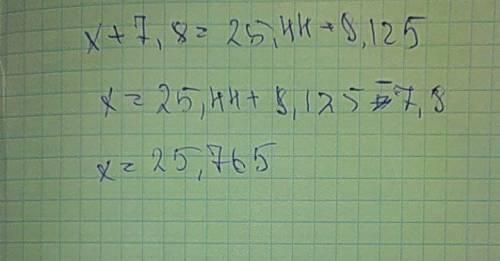 x + 7,8 = 25,44 + 8,125
x = 25,44 + 8,125 - 7,8
x = 25,765